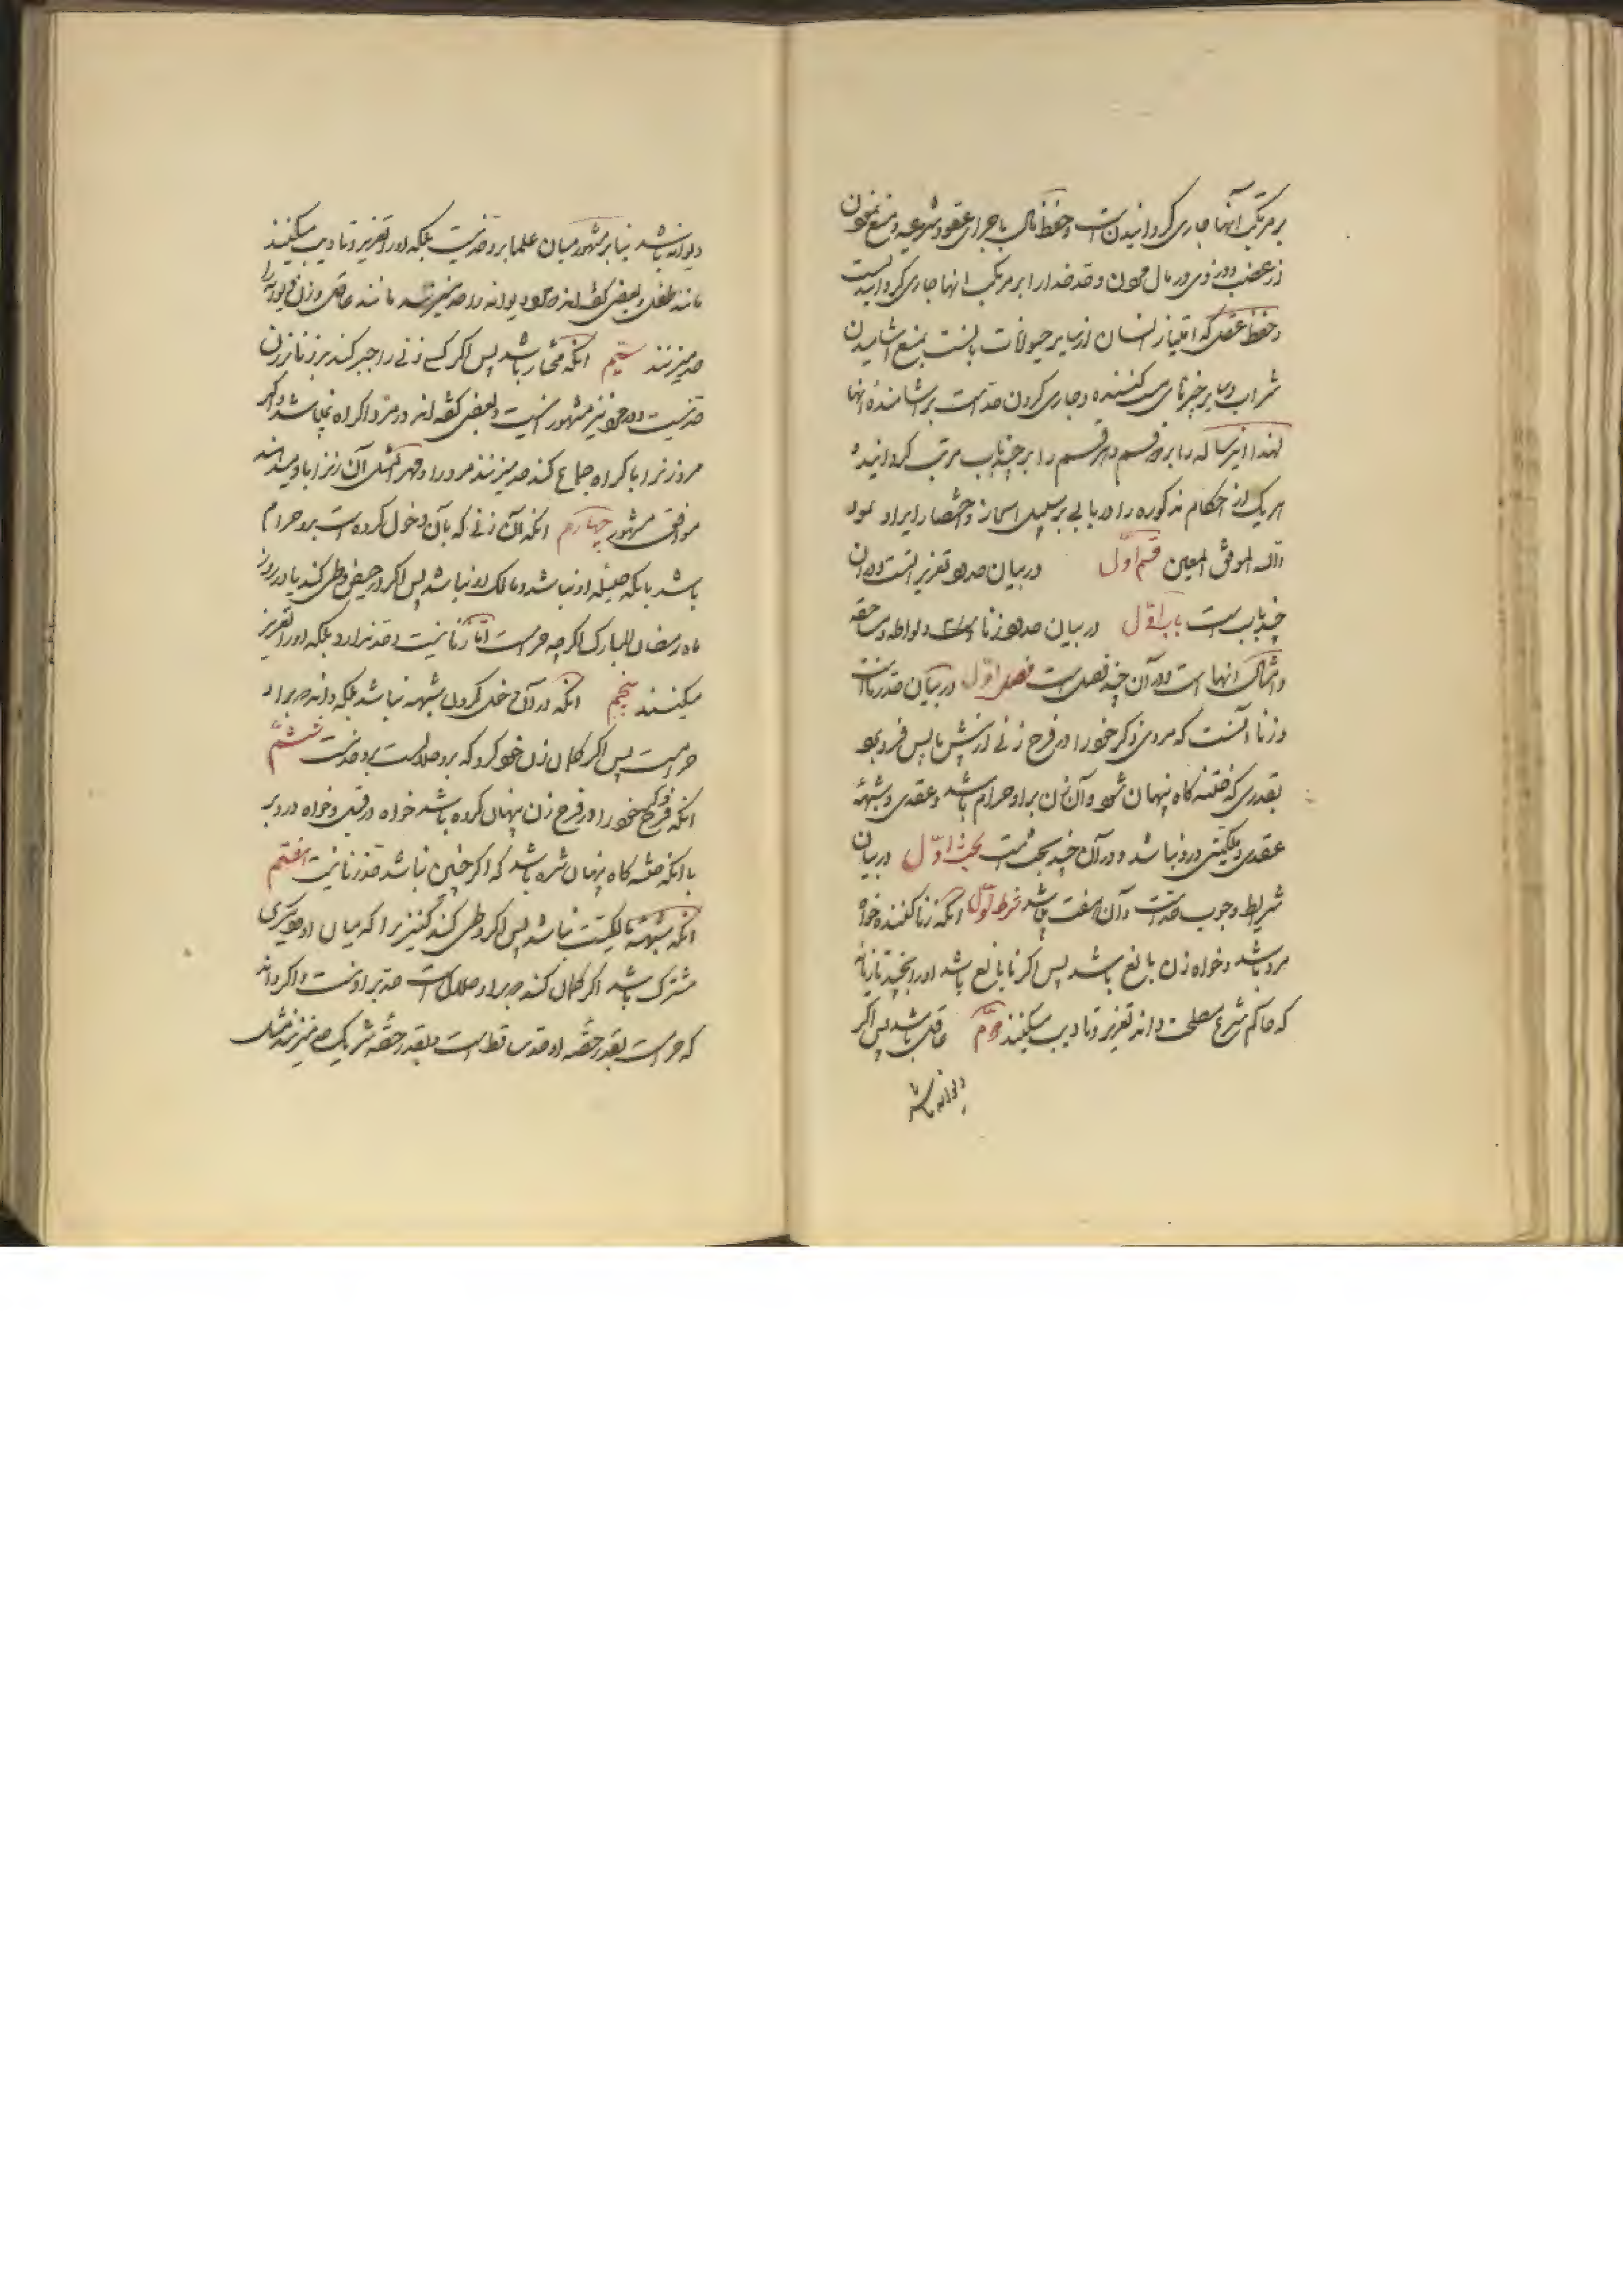 بر مرتکب آنها جاری گردانیدن است و حفظ مال باجرای عقود شرعیه و منع نمودن
از غصب و دزدی در مال مردم و حد خدا را بر مرتکب انها جاری گردانیدنست
و حفظ عقل که امتیاز انسان از سایر حیوانات بآنست بمنع اشامیدن
شراب و سایر چیزهای مست کننده و جاری کردن حدست بر اشامندهٔ انها
لهذا اینرساله را بر دو قسم و هر قسم را بر چند باب مرتب گردانیده
هر یک از احکام مذکوره را در بابی بر سبیل ایجاز و اختصار ایراد نمود
والله الموفق المعین قسم اول در بیان حدود و تعزیراتست و در ان
چند باب است باب اول در بیان حدود زنا و لواطه و مساحقه
و امثال انها است و در آن چند فصل است فصل اول در بیان حد زناست
و زنا آنست که مردی ذکر خود را در فرج زنی از پیش یا پس فرو برد
بقدری که ختنه گاه پنهان شود و آن زن بر او حرام باشد و عقدی و شبهه
عقدی و ملکیتی در او نباشد و در آن چند بحث است بحث اول در بیان
شرایط وجوب حد است و آن هفت میباشد شرط اول انکه زنا کننده خواه
مرد باشد و خواه زن بالغ باشد پس اکر نابالغ باشد او را بچند تازیانه
که حاکم شرع مصلحت داند تعزیر و تادیب میکنند دوم عاقل باشد پس اکر
دیوانه باشد
دیوانه باشد بنا بر مشهور میان علما بر او حد نیست بلکه او را تعزیر و تادیب میکنند
مانند طفل و بعضی گفته اند مرد دیوانه را حد میزنند مانند عاقل و زن دیوانه را
حد نمیزنند سیم انکه مختار باشد پس اکر کسی زنی را جبر کند بر زنا بر زن
حد نیست و در مرد نیز مشهور اینست و بعضی گفته اند در مرد اکراه نمیباشد و اگر
مرد زنرا باکراه جماع کند حد میزنند مرد را و مهر المثل آن زنرا باو میدهند
موافق مشهور چهارم انکه آن زنی که بآن دخول کرده است بر او حرام
باشد بانکه حلیله او نباشد و مالک او نباشد پس اکر در حیض وطی کند یا در روز
ماه رمضان المبارک اکرچه حرامست اما زنا نیست و حد ندارد بلکه او را تعزیر
میکنند پنجم انکه در آن دخل کردن شبهه نباشد بلکه داند که بر او
حرامست پس اکر گمان زن خود کرد که بر او حلالست بر او حد نیست ششم
انکه ذکر خود را در فرج زن پنهان کرده باشد خواه در قبل و خواه در دبر
بانکه ختنه گاه پنهان شده باشد که اکر چنین نباشد حد زنا نیست هفتم
انکه شبهه مالکیت نباشد پس اکر وطی کند کنیزیرا که میان او و دیگری
مشترک باشد اگر گمان کند که بر او حلال است حد بر او نیست و اکر داند
که حرامست بقدر حصه او حد ساقط است و بقدر حصه شریک حد میزنند مثل